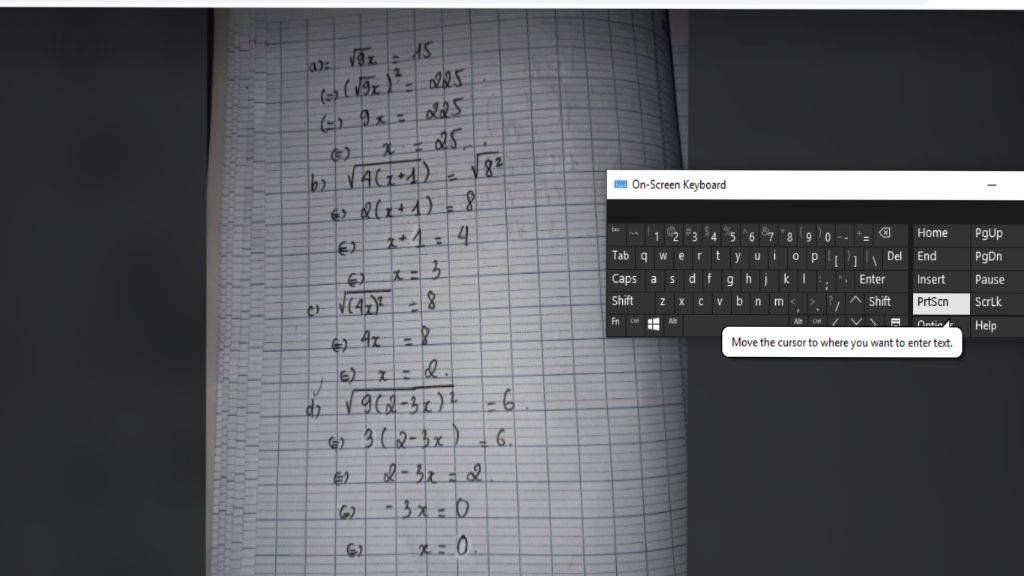 a) = √9x = 15
(=) (√9x)² = 225
(=) 9x = 225
(=) x = 25
b) √4(x+1) = √8²
(=) 2(x+1) = 8
(=) x+1 = 4
(=) x = 3
c) √(4x)² = 8
(=) 4x = 8
(=) x = 2.
d) √9(2-3x)² = 6.
(=) 3(2-3x) = 6.
(=) 2-3x = 2.
(=) -3x = 0
(=) x = 0.
On-Screen Keyboard
Esc ~ ` ! 1 @ 2 # 3 $ 4 % 5 ^ 6 & 7 * 8 ( 9 ) 0 _ - + = Home PgUp
Tab q w e r t y u i o p { [ } ] | \ Del End PgDn
Caps a s d f g h j k l : ; " ' Enter Insert Pause
Shift z x c v b n m < , > . ? / Shift PrtScn ScrLk
Fn Ctrl Alt Alt Ctrl Options Help
Move the cursor to where you want to enter text.